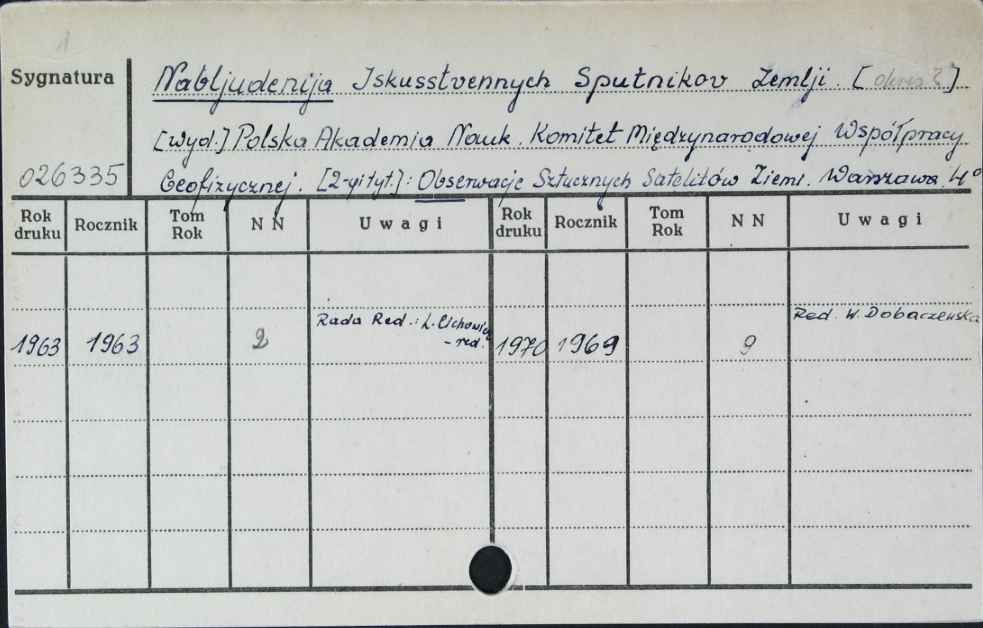 1
Sygnatura
Nabljudenija Iskusstvennych Sputnikov Zemlji. [okres?]
[wyd.] Polska Akademia Nauk. Komitet Międzynarodowej Współpracy
026335
Geofizycznej. [2-gi tyt.]: Obserwacje Sztucznych Satelitów Ziemi. Warszawa. 4°
Rok druku Rocznik Tom Rok NN Uwagi Rok druku Rocznik Tom Rok NN Uwagi
1963 1963 2 Rada Red.: L. Cichowicz
- red. 1970 1969 9 Red. W. Dobaczewska